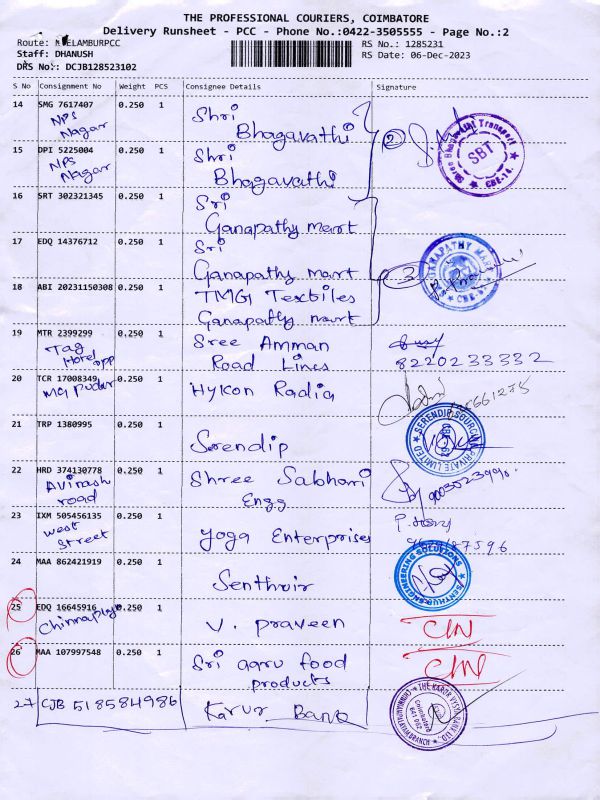 THE PROFESSIONAL COURIERS, COIMBATORE
Delivery Runsheet - PCC - Phone No.:0422-3505555 - Page No.:2
Route: NEELAMBURPCC
RS No.: 1285231
Staff: DHANUSH
RS Date: 06-Dec-2023
DRS No.: DCJB128523102
S No Consignment No Weight PCS Consignee Details Signature
14 SMG 7617407 0.250 1 Shri
NPS Nagar Bhagavathi 2
15 DPI 5225004 0.250 1 Shri
NPS Nagar Bhagavathi
SBT
16 SRT 302321345 0.250 1 Sri
Ganapathy mart
17 EDQ 14376712 0.250 1 Sri
Ganapathy mart 3
GANAPATHY MART
18 ABI 20231150308 0.250 1 TMG Textiles
Ganapathy mart
19 MTR 2399299 0.250 1 Sree Amman
Tag Hotel opp Road Lines 8220233332
20 TCR 17008349 0.250 1 Hykon Radia
MG Pudur
21 TRP 1380995 0.250 1 Serendip
PRIVATE LIMITED
22 HRD 374130778 0.250 1 Shree Sabhari
Avinash road Engg
23 IXM 505456135 0.250 1 Yoga Enterprises
West Street
24 MAA 862421919 0.250 1 Senthuir
ENGINEERING SOLUTIONS
25 EDQ 16645916 0.250 1 V. praveen
26 MAA 107997548 0.250 1 Sri agru food
products
27 CJB 518584986 Karur Bank
THE KARUR VYSYA BANK LTD.